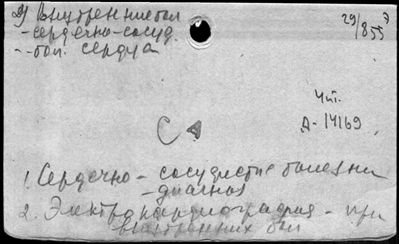 2) Внутренние бол
29/855
- сердечно-сосуд.
- бол. сердца
Чит.
А-14169
1. Сердечно-сосудистые болезни
- диагноз
2. Электрокардиография - при
внутренних бол